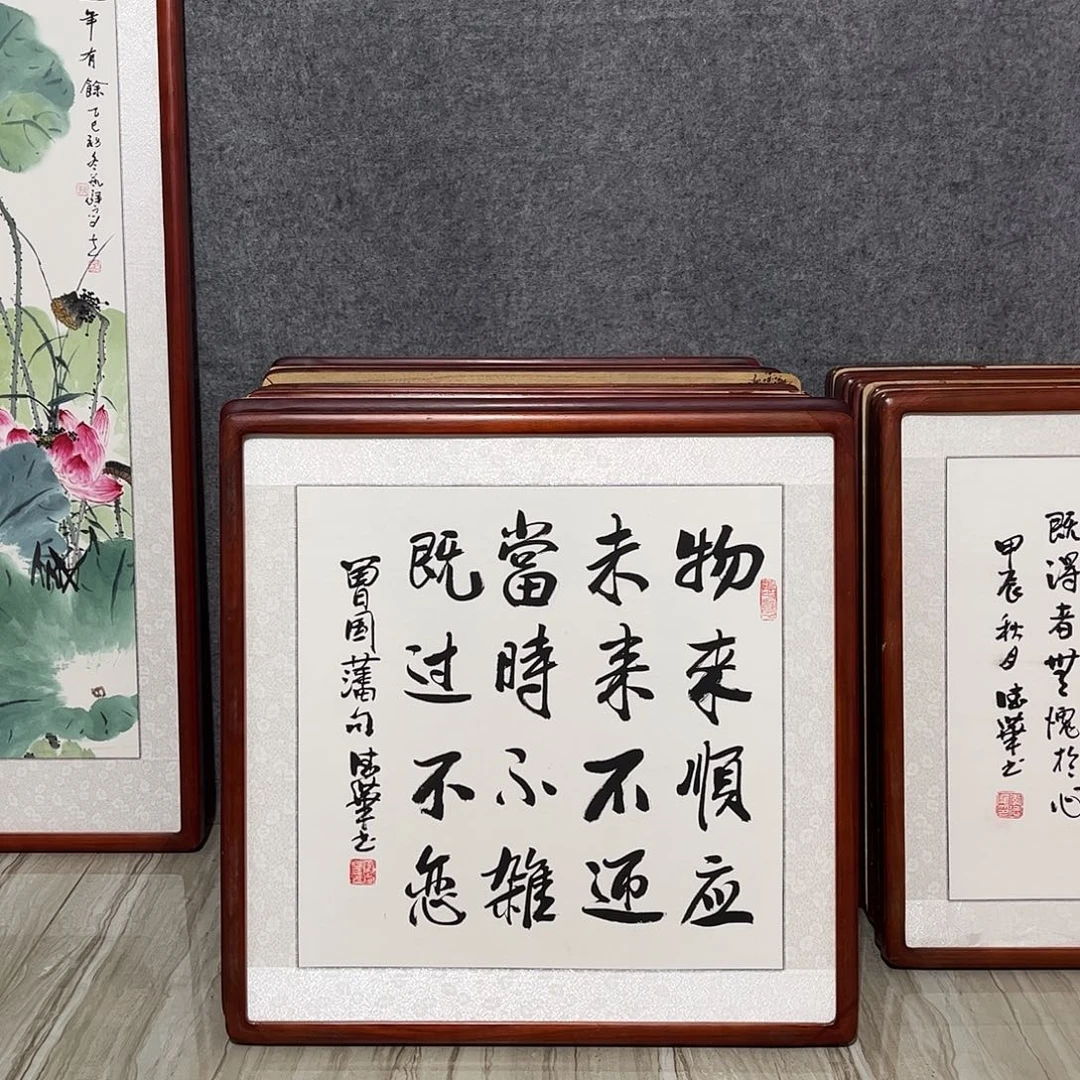 年有餘
乙巳初冬
物來順应
未来不迎
當時不雜
既过不恋
曾国藩句 華书
既得者無愧於心
甲辰秋月 華书